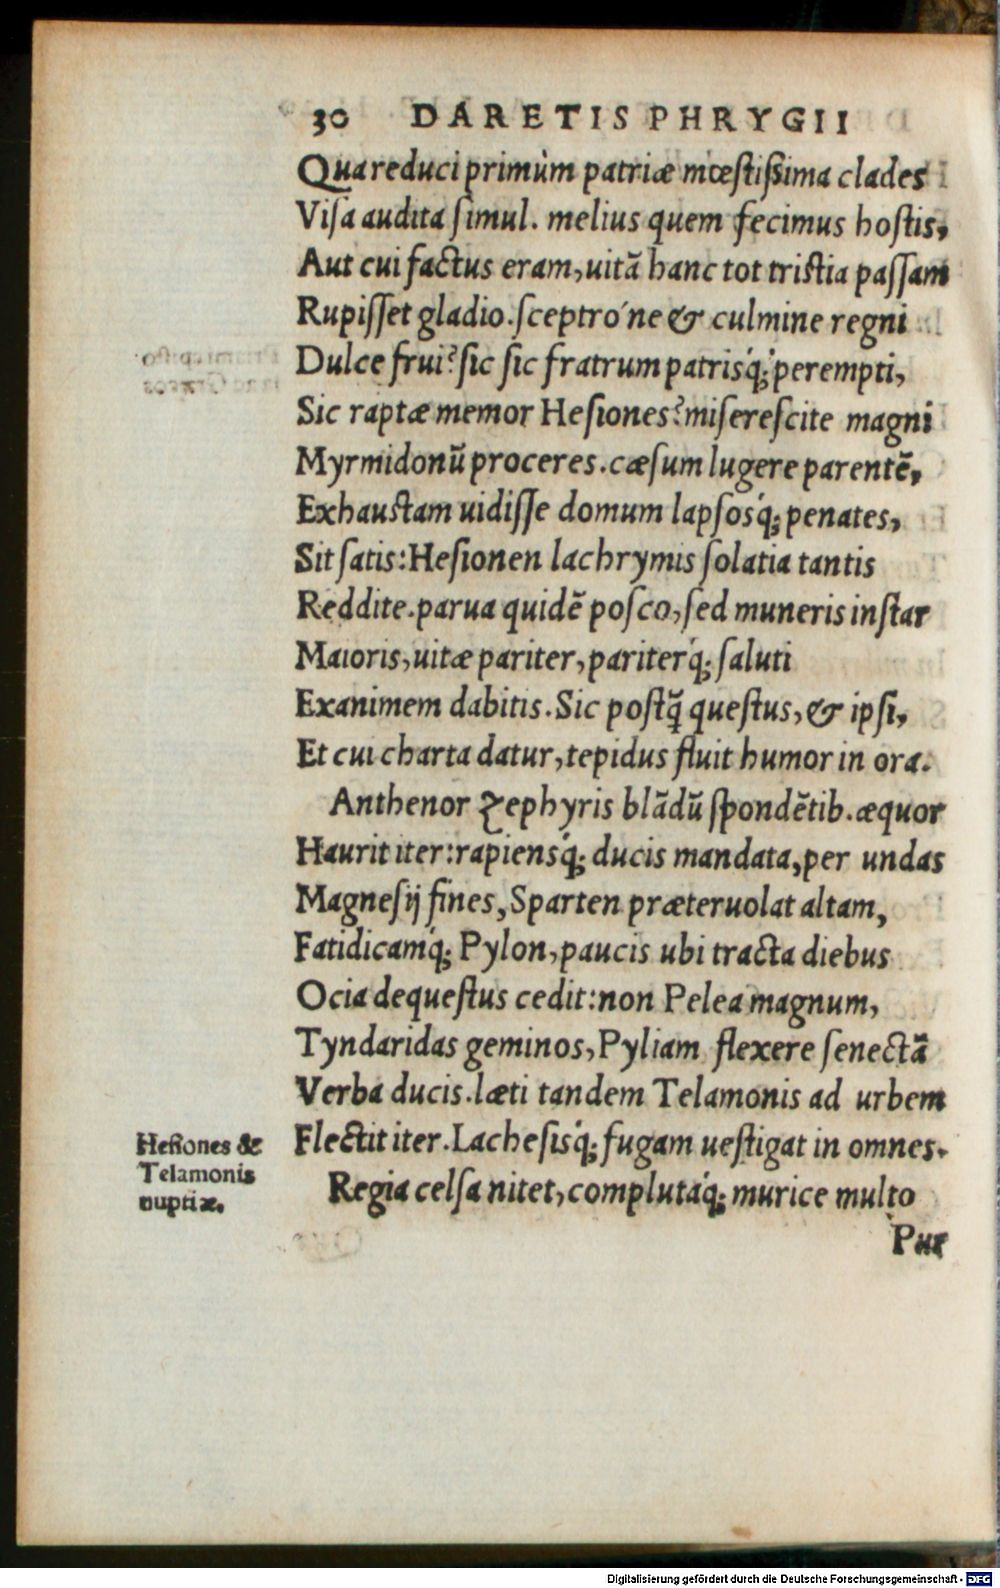 30 DARETIS PHRYGII
Qua reduci primùm patriæ mœstißima clades
Visa audita simul. melius quem fecimus hostis,
Aut cui factus eram, uitā hanc tot tristia passam
Rupisset gladio. sceptróne & culmine regni
Dulce frui? sic sic fratrum patrisq́; perempti,
Sic raptæ memor Hesiones? miserescite magni
Myrmidonū proceres. cæsum lugere parentē,
Exhaustam uidisse domum lapsosq́; penates,
Sit satis: Hesionen lachrymis solatia tantis
Reddite. parua quidē posco, sed muneris instar
Maioris, uitæ pariter, pariterq́; saluti
Exanimem dabitis. Sic postq̄ questus, & ipsi,
Et cui charta datur, tepidus fluit humor in ora.
Anthenor zephyris blādū spondētib. æquor
Haurit iter: rapiensq́; ducis mandata, per undas
Magnesij fines, Sparten præteruolat altam,
Fatidicamq́; Pylon, paucis ubi tracta diebus
Ocia dequestus cedit: non Pelea magnum,
Tyndaridas geminos, Pyliam flexere senectā
Verba ducis. læti tandem Telamonis ad urbem
Flectit iter. Lachesisq́; fugam uestigat in omnes.
Hesiones &
Telamonis
nuptiæ.
Regia celsa nitet, complutaq́; murice multo
Pur
Digitalisierung gefördert durch die Deutsche Forschungsgemeinschaft - DFG